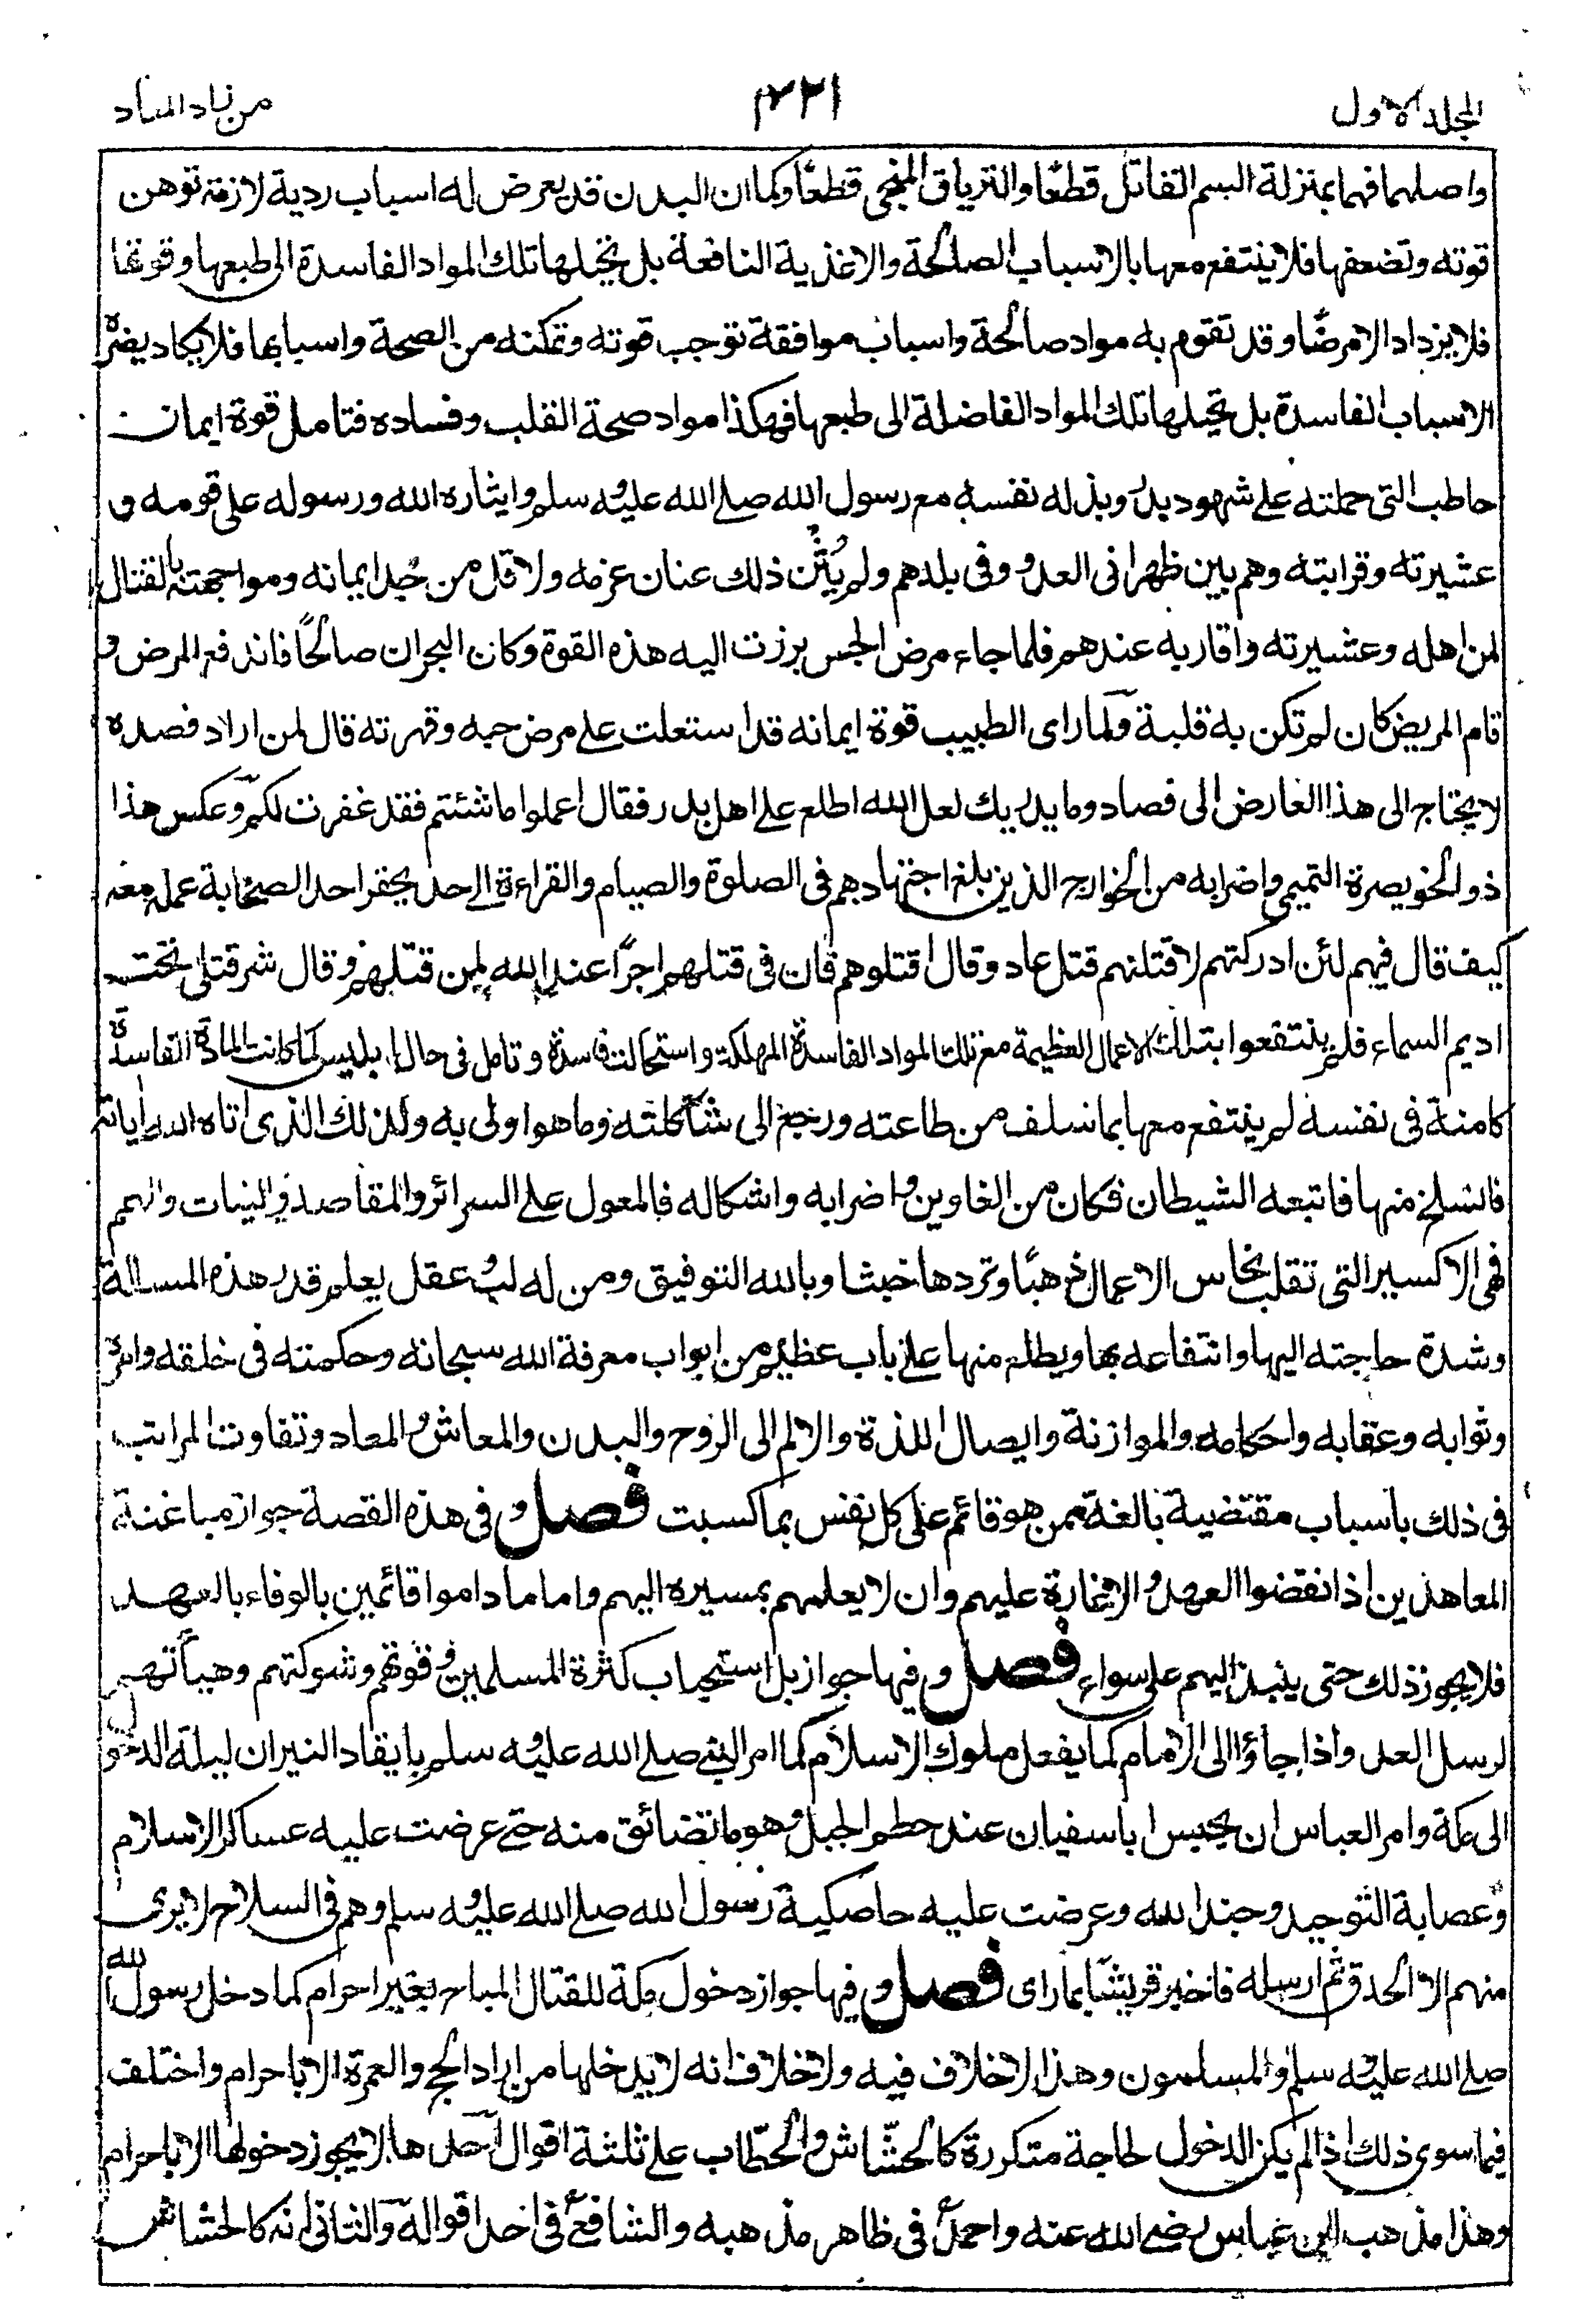 المجلد الاول
٤٢١
من زاد المعاد
واصلهما فهما بمنزلة السم القاتل قطعًا والترياق المنجى قطعًا وكما ان البدن قد يعرض له اسباب ردية لازمة توهن
قوته وتضعفها فلا ينتفع معها بالاسباب الصالحة والاغذية النافعة بل تحيلها تلك المواد الفاسدة الى طبعها وقوتها
فلا يزداد الا مرضًا وقد تقوم به مواد صالحة واسباب موافقة توجب قوته وتمكنه من الصحة واسبابها فلا يكاد يضره
الاسباب الفاسدة بل تحيلها تلك المواد الفاضلة الى طبعها فهكذا مواد صحة القلب وفساده فتامل قوة ايمان
حاطب التى حملته على شهود بدر وبذله نفسه مع رسول الله صلى الله عليه وسلم وايثاره الله ورسوله على قومه و
عشيرته وقرابته وهم بين ظهرانى العدو وفى بلدهم ولم يُثن ذلك عنان عزمه ولا فل من حد ايمانه ومواجهته بالقتال
لمن اهله وعشيرته واقاربه عندهم فلما جاء مرض الجس برزت اليه هذه القوة وكان البحران صالحًا فاندفع المرض و
قام المريض كان لم تكن به قلبة ولما راى الطبيب قوة ايمانه قد استعلت على مرض حبه وقهرته قال لمن اراد فصده
لا يحتاج الى هذا العارض الى فصاد وما يدريك لعل الله اطلع على اهل بدر فقال اعملوا ما شئتم فقد غفرت لكم وعكس هذا
ذو الخويصرة التميمى واضرابه من الخوارج الذين بلغ اجتهادهم فى الصلوة والصيام والقراءة الى حد يحقر احد الصحابة عمله معه
كيف قال فيهم لئن ادركتهم لاقتلنهم قتل عاد وقال اقتلوهم فان فى قتلهم اجرًا عند الله لمن قتلهم وقال شر قتلى تحت
اديم السماء فلم ينتفعوا بتلك الاعمال العظيمة مع تلك المواد الفاسدة المهلكة واستحالت فاسدة وتامل فى حال ابليس لما كانت المادة الفاسدة
كامنة فى نفسه لم ينتفع معها بما سلف من طاعته ورجع الى شاكلته وما هو اولى به ولذلك الذى اتاه الله اياته
فانسلخ منها فاتبعه الشيطان فكان من الغاوين واضرابه واشكاله فالمعول على السرائر والمقاصد والنيات والهمم
فهى الاكسير التى تقلب نحاس الاعمال ذهبًا وتردها خبثا وبالله التوفيق ومن له لب وعقل يعلم قدر هذه المسالة
وشدة حاجته اليها وانتفاعه بها ويطلع منها على باب عظيم من ابواب معرفة الله سبحانه وحكمته فى خلقه وامره
وثوابه وعقابه واحكامه والموازنة وايصال اللذة والالم الى الروح والبدن والمعاش والمعاد وتفاوت المراتب
فى ذلك باسباب مقتضية بالغة ممن هو قائم على كل نفس بما كسبت فصل وفى هذه القصة جواز مباغتة
المعاهدين اذا نقضوا العهد والاغارة عليهم وان لا يعلمهم بمسيره اليهم واما ما داموا قائمين بالوفاء بالعهد
فلا يجوز ذلك حتى ينبذ اليهم على سواء فصل وفيها جواز بل استحباب كثرة المسلمين وقوتهم وشوكتهم وهيأتهم
لرسل العدو اذا جاؤا الى الامام كما يفعل ملوك الاسلام كما امر النبى صلى الله عليه وسلم بايقاد النيران ليلة الدخول
الى مكة وامر العباس ان يحبس ابا سفيان عند حطم الجبل وهو ما تضائق منه حتى عرضت عليه عساكر الاسلام
وعصابة التوحيد وجند الله وعرضت عليه حاصكية رسول الله صلى الله عليه وسلم وهم فى السلاح لا يرى
منهم الا الحدق ثم ارسله فاخبر قريشًا بما راى فصل وفيها جواز دخول مكة للقتال المباح بغير احرام كما دخل رسول الله
صلى الله عليه وسلم والمسلمون وهذا لا خلاف فيه ولا خلاف انه لا يدخلها من اراد الحج والعمرة الا باحرام واختلف
فيما سوى ذلك اذا لم يكن الدخول لحاجة متكررة كالحشاش والحطاب على ثلثة اقوال احدها لا يجوز دخولها الا باحرام
وهذا مذهب ابن عباس رضى الله عنه واحمد فى ظاهر مذهبه والشافعى فى احد اقواله والثانى انه كالحشاش